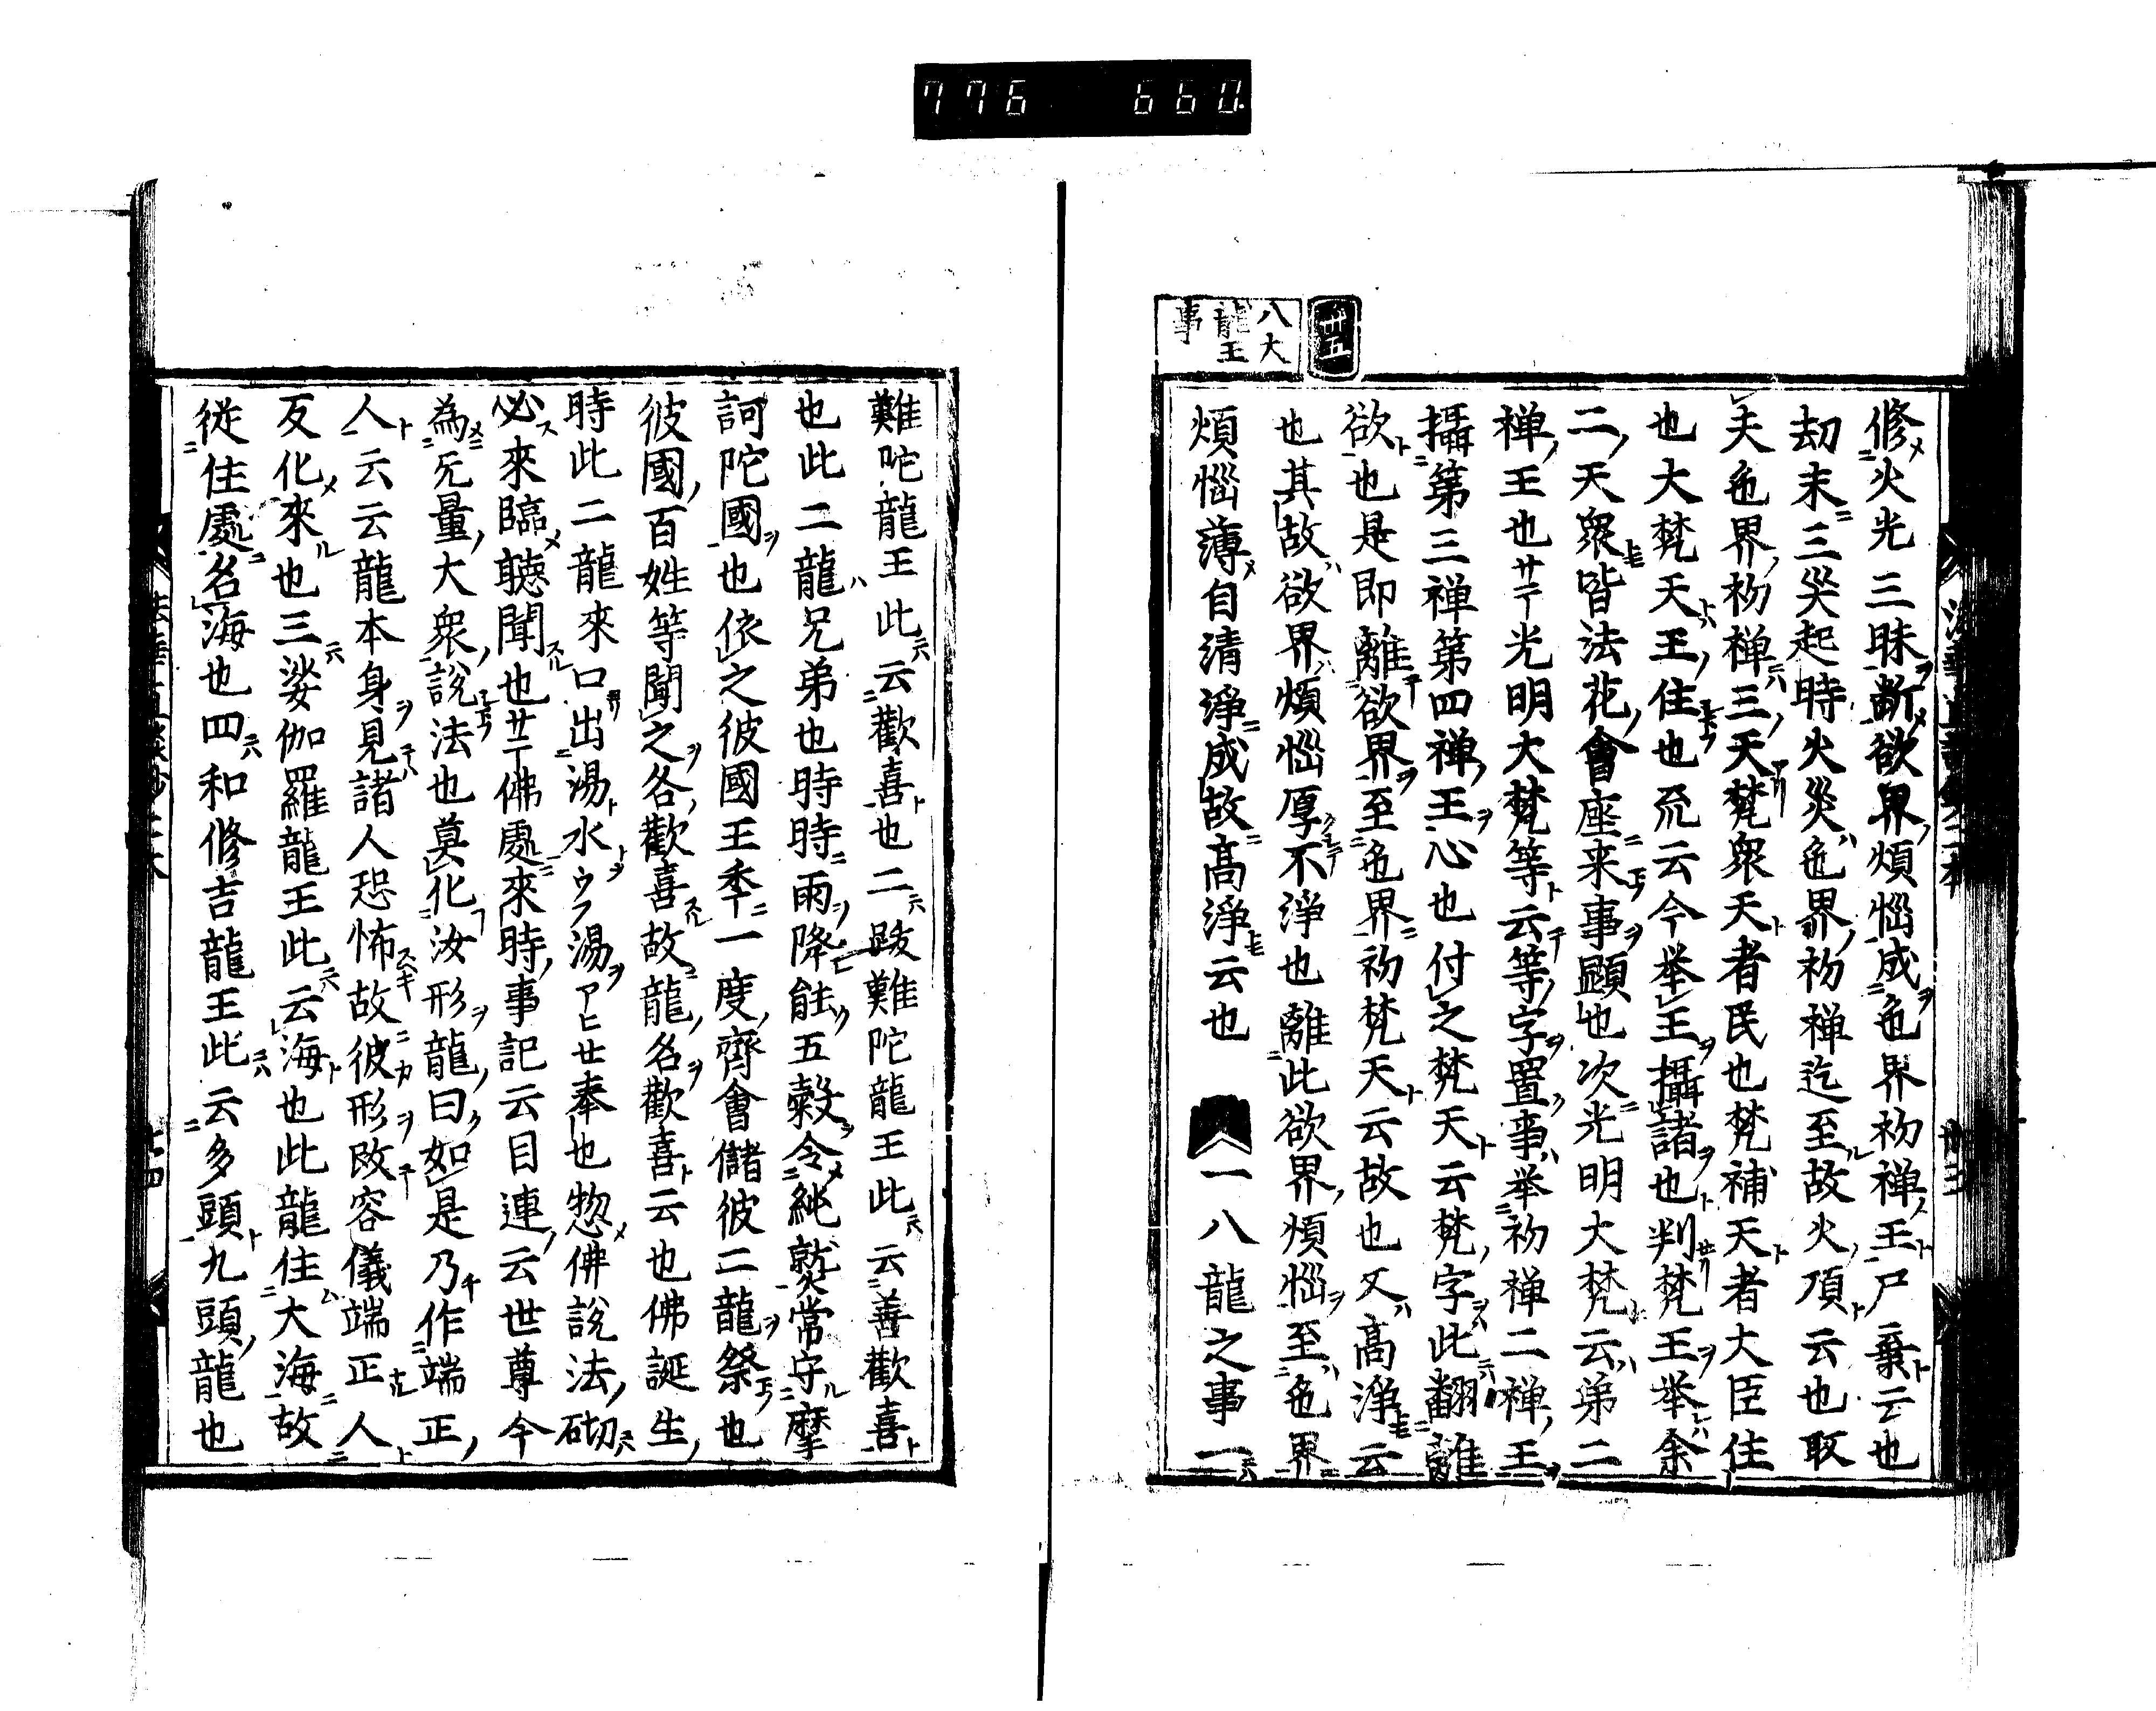 776 660
卅五
八大
龍王
事
修火光三昧断欲界煩悩成色界初禅王尸棄云也
劫末三災起時火災色界初禅迄至故火頂云也取
夫色界初禅三天梵衆天者民也梵補天者大臣住
也大梵天王住也疏云今举王攝諸也判梵王举余
二天衆皆法花會座来事顕也次光明大梵云第二
禅王也サテ光明大梵等云等字置事举初禅二禅王
攝第三禅第四禅王心也付之梵天云梵字此翻離
欲也是即離欲界至色界初梵天云故也又高浄云
也其故欲界煩悩厚不浄也離此欲界煩悩至色界
煩悩薄自清浄成故高浄云也 一八龍之事一
難陀龍王此云歡喜也二跋難陀龍王此云善歡喜
也此二龍兄弟也時時雨降能五穀令純熟常守摩
訶陀國也依之彼國王季一度齊會儲彼二龍祭也
彼國百姓等聞之各歡喜故龍名歡喜云也佛誕生
時此二龍來口出湯水ウフ湯アヒせ奉也惣佛說法砌
必來臨聽聞也サテ佛處來時事記云目連云世尊今
為无量大衆說法也莫化汝形龍曰如是乃作端正
人云云龍本身見諸人恐怖故彼形改容儀端正人
反化來也三娑伽羅龍王此云海也此龍住大海故
從住處名海也四和修吉龍王此云多頭九頭龍也